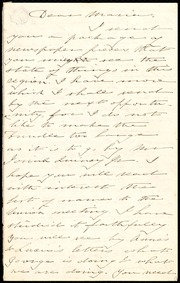 Dear Maria,
I send
you a package of
newspaper pieces that
you might see the
state of things in this
region. I have more
which I shall send
by the next opportu-
nity for I do not
like to make the
bundle too large
as it is to go by Mr
Josiah
hope you will read
with interest the
part of
Union meeting I have
you will see by Anne's
& Lucia's letters what
George is doing & what
we are doing. You need